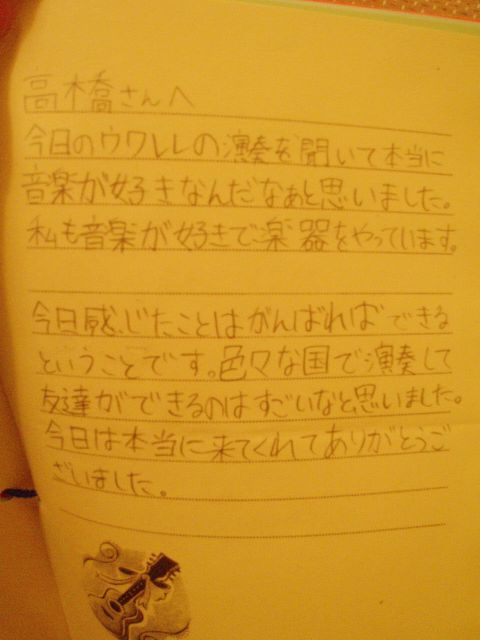 高木橋さんへ
今日のウワレレの演奏を聞いて本当に
音楽が好きなんだなぁと思いました。
私も音楽が好きで楽器をやっています。
今日感じたことはがんばればできる
ということです。色々な国で演奏して
友達ができるのはすごいなと思いました。
今日は本当に来てくれてありがとうご
ざいました。